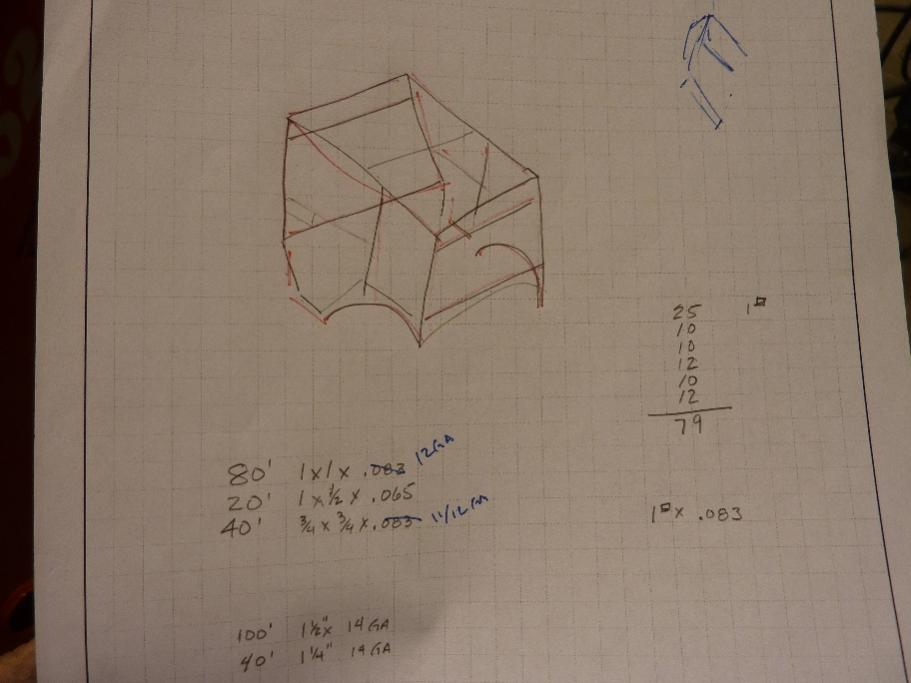 25 1
10
10
12
10
12
79
80' 1x1x .083 12GA
20' 1x½x .065
40' ¾x¾x.083 11/12GA
1 x .083
100' 1½"x 14GA
40' 1¼" 14GA